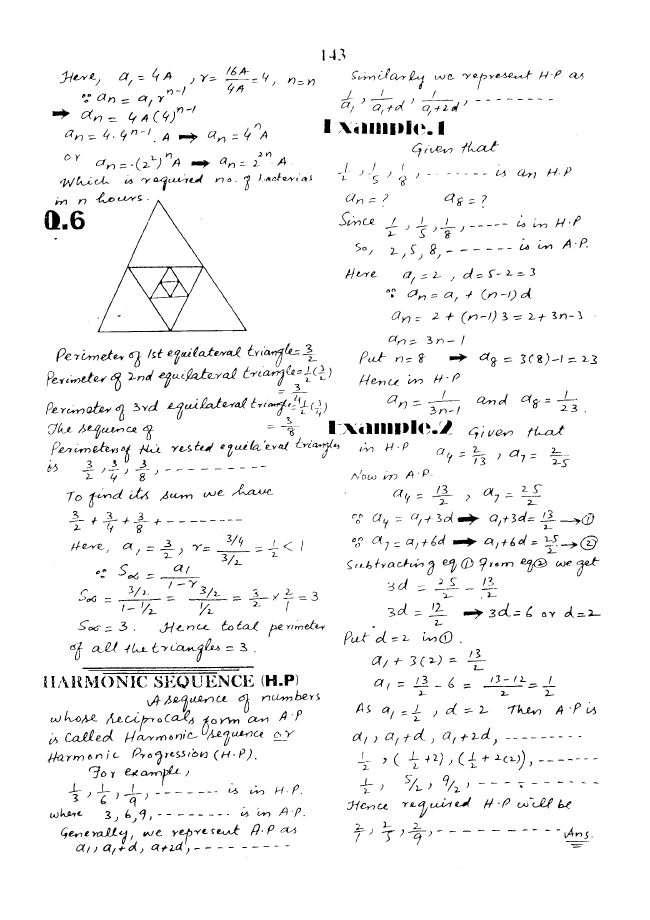 143
Here, a₁ = 4A , r = 16A/4A = 4, n = n
∵ aₙ = a₁rⁿ⁻¹
➡ aₙ = 4A(4)ⁿ⁻¹
aₙ = 4·4ⁿ⁻¹·A ➡ aₙ = 4ⁿA
or aₙ = (2²)ⁿA ➡ aₙ = 2²ⁿ A.
Which is required no. of bacterias
in n hours.
Q.6
Perimeter of 1st equilateral triangle = 3/2
Perimeter of 2nd equilateral triangle = 1/2(3/2)
= 3/4
Perimeter of 3rd equilateral triangle = 1/2(3/4)
The sequence of = 3/8
Perimeters of the rested equilateral triangles
is 3/2, 3/4, 3/8, ----------
To find its sum we have
3/2 + 3/4 + 3/8 + ---------
Here, a₁ = 3/2, r = (3/4)/(3/2) = 1/2 < 1
∵ S∞ = a1/(1-r)
S∞ = (3/2)/(1-1/2) = (3/2)/(1/2) = 3/2 × 2/1 = 3
S∞ = 3. Hence total perimeter
of all the triangles = 3.
HARMONIC SEQUENCE (H.P)
A sequence of numbers
whose reciprocals form an A.P
is called Harmonic sequence or
Harmonic Progression (H.P).
For example,
1/3, 1/6, 1/9, ------- is in H.P.
where 3, 6, 9, -------- is in A.P.
Generally, we represent A.P as
a₁, a₁+d, a+2d, ----------
Similarly we represent H.P as
1/a₁, 1/(a₁+d), 1/(a₁+2d), --------
Example.1
Given that
1/2, 1/5, 1/8, ------- is an H.P
aₙ = ? a₈ = ?
Since 1/2, 1/5, 1/8, ----- is in H.P
So, 2, 5, 8, ------ is in A.P.
Here a₁ = 2 , d = 5-2 = 3
∵ aₙ = a₁ + (n-1)d
aₙ = 2 + (n-1)3 = 2+3n-3.
aₙ = 3n-1
Put n = 8 ➡ a₈ = 3(8)-1 = 23
Hence in H.P
aₙ = 1/(3n-1) and a₈ = 1/23.
Example.2 Given that
in H.P a₄ = 2/13, a₇ = 2/25
Now in A.P.
a₄ = 13/2 , a₇ = 25/2
∵ a₄ = a₁+3d ➡ a₁+3d = 13/2 → ①
∵ a₇ = a₁+6d ➡ a₁+6d = 25/2 → ②
Subtracting eq ① from eq ② we get
3d = 25/2 - 13/2
3d = 12/2 ➡ 3d = 6 or d = 2
Put d = 2 in ①.
a₁ + 3(2) = 13/2
a₁ = 13/2 - 6 = (13-12)/2 = 1/2
As a₁ = 1/2 , d = 2 Then A.P is
a₁, a₁+d, a₁+2d, ---------
1/2, (1/2+2), (1/2+2(2)), -------
1/2, 5/2, 9/2, ----------
Hence required H.P will be
2/1, 2/5, 2/9, ----------- Ans.